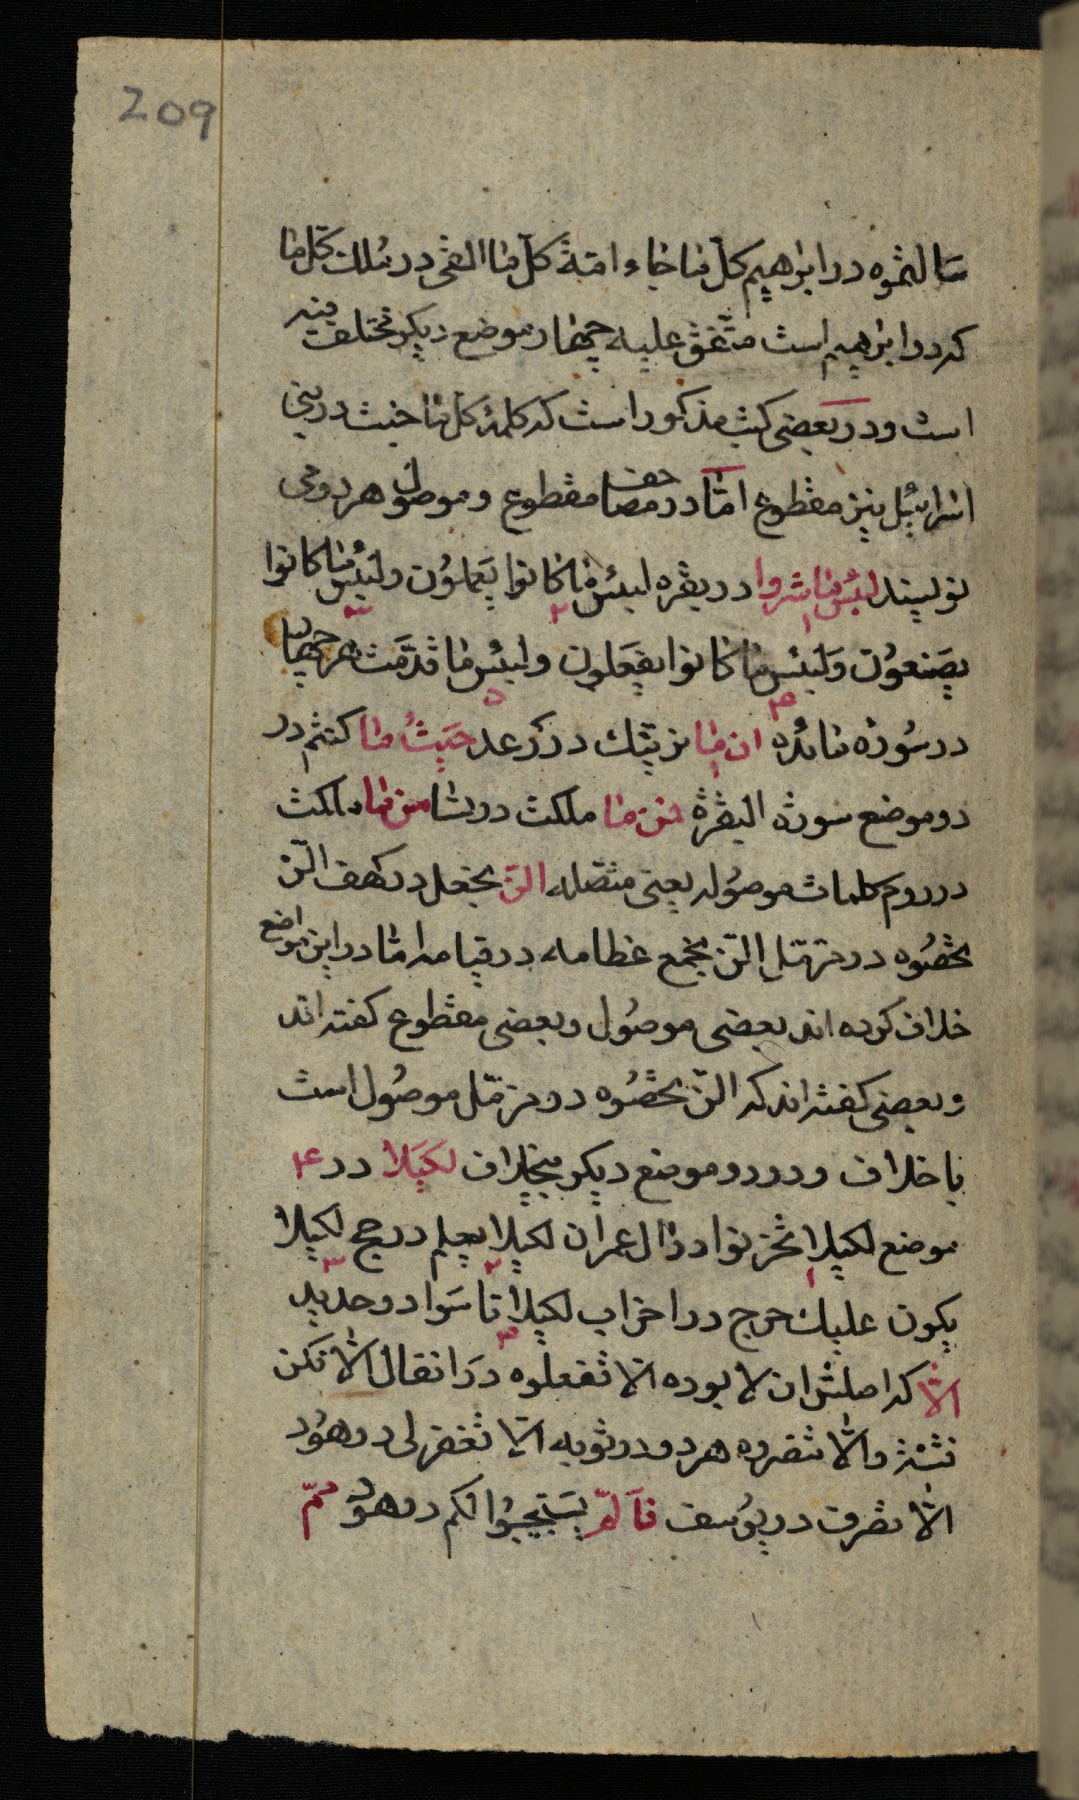 209
سالتموه در ابراهیم کل ما جاء امة کل ما القی در ملک کل ما
که در ابراهیم است متّفق علیه چهار موضع دیکر مختلف فیه
است و در بعضی کتب مذکور است که کلمهٔ کل ما خبت در بنی
اسرائیل نیز مقطوع امّا در مصاحف مقطوع و موصول هر دو می
نویسند لبئس ما شروا در بقره لبئس ما کانوا یعملون ولبئس ما کانوا
یصنعون ولبئس ما کانوا یفعلون ولبئس ما قدّمت هر چهار
در سوره مائده ان ما نرینّک در رعد حیث ما کنتم در
دو موضع سورة البقرة من ما ملکت در نسا من ما ملکت
در روم کلمات موصوله یعنی متّصله الّن نجعل در کهف الّن
تحصوه در مزمّل الّن نجمع عظامه در قیامه امّا در این مواضع
خلاف کرده اند بعضی موصول و بعضی مقطوع کفته اند
و بعضی کفته اند که الّن تحصوه در مزمّل موصول است
با خلاف و در دو موضع دیکر بیخلاف لکیلا در ۴
موضع لکیلا تحزنوا در ال عمران لکیلا یعلم در حج لکیلا
یکون علیک حرج در احزاب لکیلا تاسوا در حدید
الّا که اصلش ان لا بوده الّا تفعلوه در انفال الّا تکن
فتنة والّا تنصروه هر دو در توبه الّا تغفر لی در هود
الّا تصرف در یوسف فالّم یستجیبوا لکم در هود ممّ